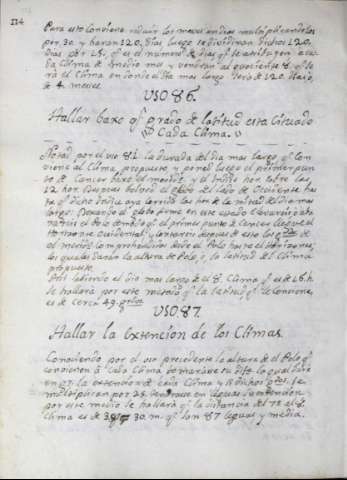 114
Para esto Conviene reducir los meses en dias multiplicandolos
por 30 y haran 120. dias luego se dividiran dichos 120.
dias por 15. q.^e es el numero de dias q.^e se atribuyen a ca
da Clima de medio mes y vendran al quociente 8. q.^e se
rá el Clima en donde el dia mas largo será de 120 dias, o
de 4 meses.
USO. 86.
Hallar baxo q.^e grado de latitud esta Cituado
Cada Clima.
Notad por el uso 81. la durada del dia mas largo q.^e con
viene al Clima propuesto y poned luego el primer pun
to de Cancer baxo el merid.^o y el Indice hor. sobre las
12 hor. Despues bolved el globo del lado de Occidente has
ta q.^e dicho Indice aya corrido las hor. de la mitad del dia mas
largo. Dexando el globo firme en este estado
el primer punto de Cancer llegue al
Horizonte Occidental y contareis despues de esto los grados de
el merid.^o comprehendidos desde el Polo hasta el Horizonte,
los quales daran la altura de Polo, o, la latitud del Clima
propuesto.
Asi sabiendo el dia mas largo de el 8. Clima q.^e es de 16. h.
se hallará por este metodo q.^e la latitud q.^e le conviene,
es de cerca 49. grados
USO. 87.
Hallar la extencion de los Climas.
Conociendo por el uso precedente la altura de el Polo q.^e
convienen á cada Clima tomarase su dif.^a lo qual dará
en g.^s la extencion de cada Clima y si dichos g.^s se
multiplican por 25. tendrase en leguas su extencion
por este medio se hallará q.^e la distancia del 7.^o al 8.
Clima es de 3 g.^s 30. m. q.^e son 87 leguas y media.